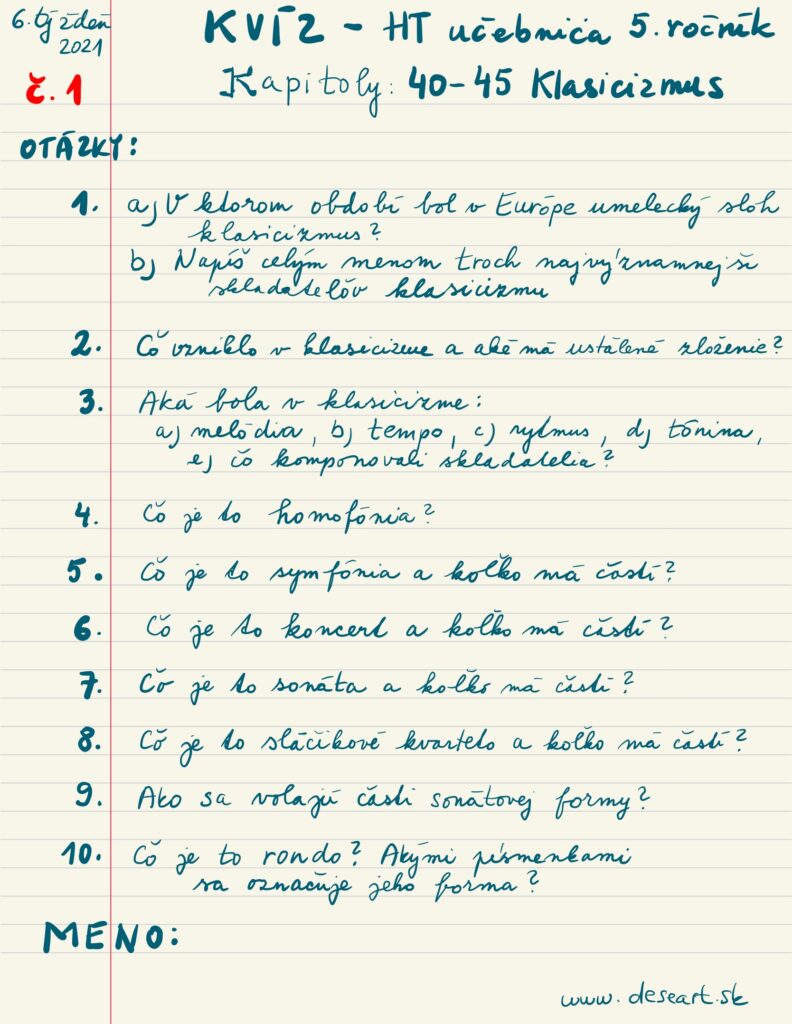 6. týždeň
2021
KVÍZ - HT učebnica 5. ročník
č. 1
Kapitoly: 40-45 Klasicizmus
OTÁZKY:
1. a) V ktorom období bol v Európe umelecký sloh
klasicizmus?
b) Napíš celým menom troch najvýznamnejší
skladateľov klasicizmu
2. Čo vzniklo v klasicizme a aké má ustálené zloženie?
3. Aká bola v klasicizme:
a) melódia, b) tempo, c) rytmus, d) tónina,
e) čo komponovali skladatelia?
4. Čo je to homofónia?
5. Čo je to symfónia a koľko má častí?
6. Čo je to koncert a koľko má častí?
7. Čo je to sonáta a koľko má častí?
8. Čo je to sláčikové kvarteto a koľko má častí?
9. Ako sa volajú časti sonátovej formy?
10. Čo je to rondo? Akými písmenkami
sa označuje jeho forma?
MENO:
www.deseart.sk